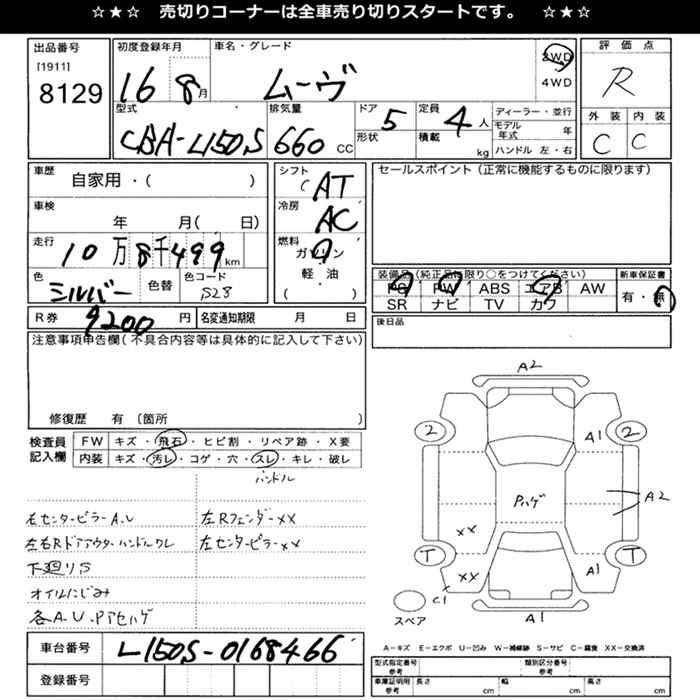 ☆★☆ 売切りコーナーは全車売り切りスタートです。 ☆★☆
出品番号
[1911]
8129
初度登録年月
16 8月
車名・グレード
ムーヴ
2WD
4WD
評価点
R
外装 内装
C C
型式
CBA-L150S
排気量
660 CC
ドア 5
形状
定員 4 人
積載 kg
ディーラー・並行
モデル年式 年
ハンドル 左・右
車歴
自家用・( )
車検
年 月( 日)
走行
10万8千499km
色
シルバー
色替
色コード
S28
シフト
( AT
冷房
AC
燃料
ガソリン
軽・油
( )
セールスポイント(正常に機能するものに限ります)
装備品(純正品に限り○をつけてください)
PS PW ABS エアB AW
SR ナビ TV カワ
新車保証書
有・無
R券 9200円
名変通知期限 月 日
後日品
注意事項申告欄(不具合内容等は具体的に記入して下さい)
修復歴 有 〔箇所 〕
検査員記入欄
FW キズ・飛石・ヒビ割・リペア跡・X要
内装 キズ・汚レ・コゲ・穴・スレ・キレ・破レ
ハンドル
右センターピラーA.U
左Rフェンダーxx
左右Rドアアウターハンドルワレ
左センターピラーxx
下廻りS
オイルにじみ
各A.U.Pアセハゲ
車台番号 L150S-0168466
登録番号
A2
2 A1 2
Pハゲ
A2
xx
T xx A1 T
C1
スペア
A1
A-キズ E-エクボ U-凹み W-補修跡 S-サビ C-腐食 XX-交換済
型式指定番号 参考
類別区分番号 参考
車庫証明用 参考
長さ cm
幅 cm
高さ cm